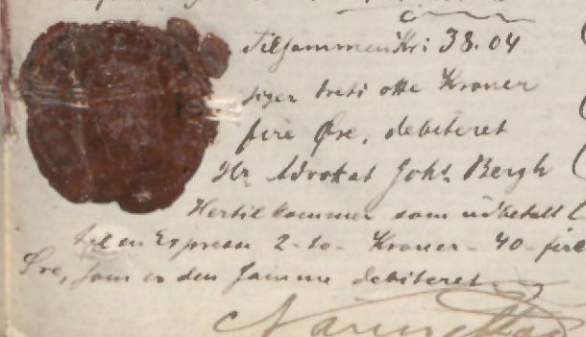 Tilsammen Kr: 38.04
siger treti otte Kroner
fire Øre, debiteret
Hr Advokat Johs. Bergh
Hertil kommer som udbetalt
til en Expressen 2-to- Kroner - 40-firti
Øre, som er den samme debiteret